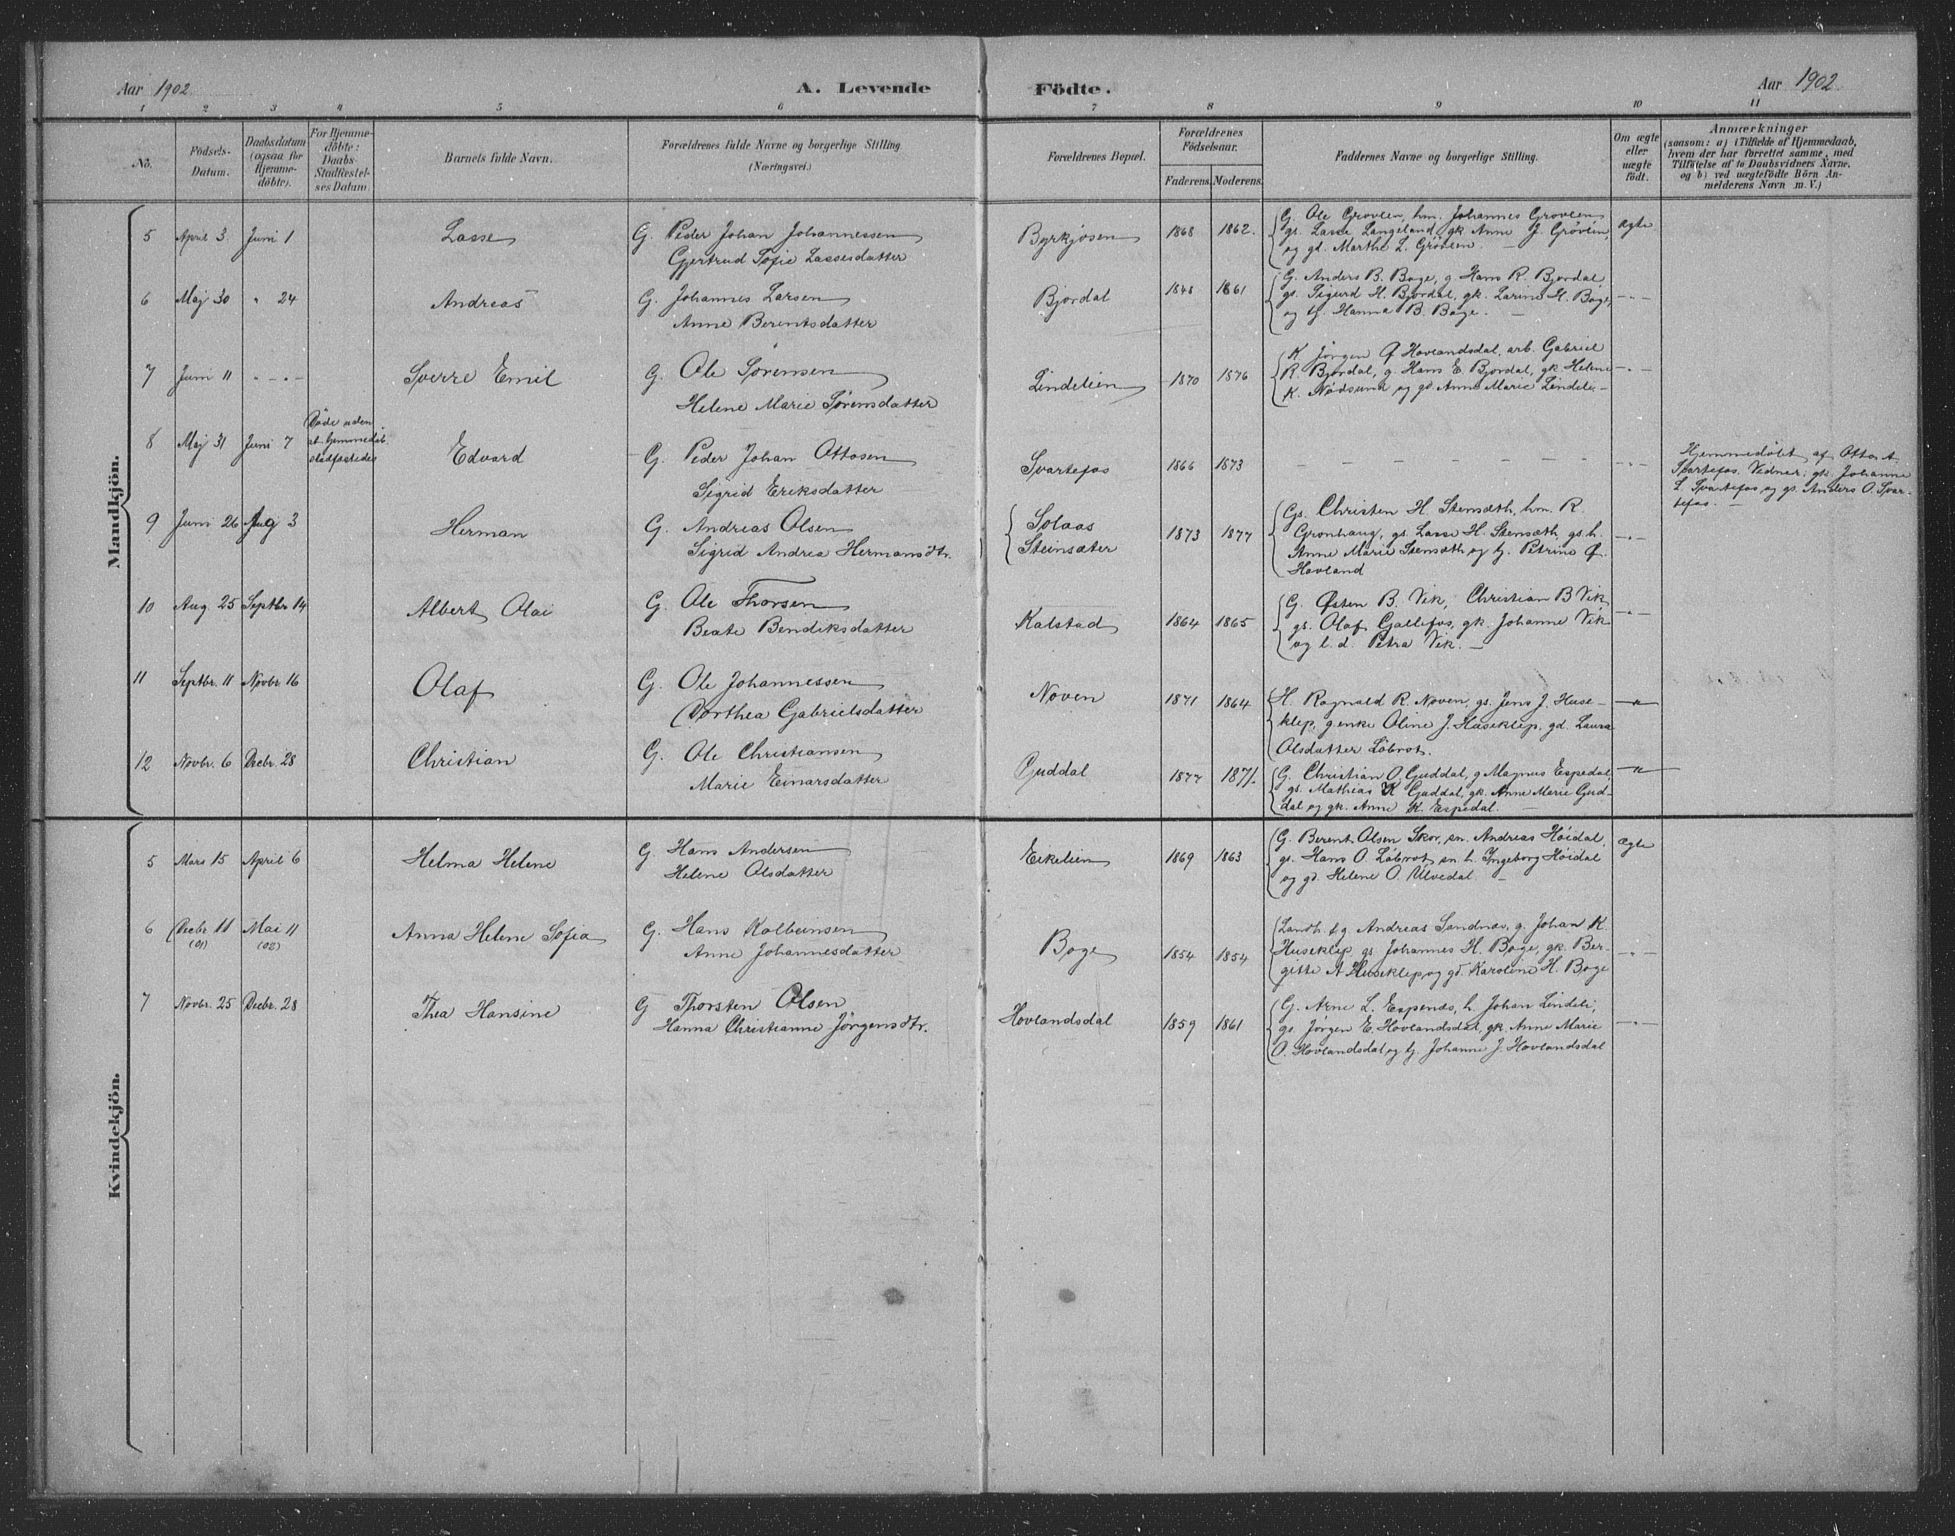 Aar 1902 A. Levende Födte. Aar 1902
1 2 3 4 5 6 7 8 9 10 11
No. Födsels-Datum. Daabsdatum (ogsaa for Hjemme-döbte). For Hjemme-döbte: Daabs-Stadfæstel-ses Datum. Barnets fulde Navn. Forældrenes fulde Navne og borgerlige Stilling. (Næringsvei.) Forældrenes Bopæl. Forældrenes Födselsaar. Faderens. Moderens. Faddernes Navne og borgerlige Stilling. Om ægte eller uægte födt. Anmærkninger (saasom: a) i Tilfælde af Hjemmedaab, hvem der har forrettet samme, med Tilföielse af to Daabsvidners Navne, og b) ved uægtefödte Börn An-melderens Navn m. V.)
Mandkjön.
5 April 3 Juni 1 Lasse G. Peder Johan Johannessen
Gjertrud Sofie Lassesdatter
Byrkjosen 1868 1862. G. Ole Grovlen, hm. Johannes Grovlen
gs. Lasse Langeland, gk. Anne J. Grovlen,
og gd. Marthe L. Grövlen. ægte
6 Maj 30 " 24 Andreas G. Johannes Larsen
Anne Berentsdatter
Bjordal 1848 1861 G. Anders B. Böge, g. Hans R. Bjordal
gs. Sigurd H. Bjordal, gk. Larine H. Böge,
og tj. Hanna B. Böge. -"-
7 Juni 11 -"- Sverre Emil G. Ole Sørensen
Helene Marie Sørensdatter
Lindelien 1870 1876 K. Jörgen O Hovlandsdal, arb. Gabriel
R. Bjordal, g. Hans E. Bjordal, gk. Helene
K. Nödsund og gd. Anne Marie Lindeli. -"-
8 Maj 31 Juni 7 Döde uden
at hjemmedåb
stadfæstedes Edvard G. Peder Johan Ottosen
Sigrid Eriksdatter
Svartefos 1866 1873 - - - - - - - -"- Hjemmedöbt af Otto A.
Svartefos. Vidner: gk. Johanne
L. Svartefos og gs. Anders O. Svar-
tefos.
9 Juni 26 Aug 3 Herman G. Andreas Olsen
Sigrid Andrea Hermansdtr.
Solaas
Steinsæter 1873 1877 Gs. Christen H. Stensæth, hm. R.
Grönhaug, gs. Lasse H. Stensæth gs. h.
Anne Marie Stensæth og tj. Petrine O.
Hovland -"-
10 Aug. 25 Septbr 14 Albert Olai G. Ole Thorsen
Beate Bendiksdatter
Kalstad 1864 1865 G. Østen B. Vik, Christian B Vik
gs. Olaf Gallefos, gk. Johanne Vik
og l. d. Petra Vik. -"-
11 Septbr. 11 Novbr 16 Olaf G. Ole Johannessen
Dorthea Gabrielsdatter
Noven 1871 1864 H. Ragnald R. Noven, gs. Jens J. Huse-
klep, g. enke Oline J. Huseklep, gd. Laura
Olsdatter Löbrot. -"-
12 Novbr. 6 Decbr. 28 Christian G. Ole Christiansen
Marie Einarsdatter
Guddal 1877 1871. G. Christian O. Guddal, g Magnus Espedal,
gs. Mathias K Guddal, gk. Anne Marie Gud-
dal og gk. Anne K. Espedal. -"-
Kvindekjön.
5 Mars 15 April 6 Helma Helene G Hans Andersen
Helene Olsdatter
Eikelien 1869 1863 G. Berent Olsen Skor, sn. Andreas Höidal,
gs. Hans O. Löbrot, sn. h. Ingeborg Höidal
og gd. Helene O. Ulvedal. ægte
6 Decbr 11 Mai 11
(01) (02)
Anna Helene Sofia G. Hans Kolbeinsen
Anne Johannesdatter
Böge 1854 1854 Landh. og Andreas Sandnæs, g. Johan K.
Huseklep gs. Johannes H. Böge, gk. Ber-
gette A Huseklep og gd. Karoline H. Böge -"-
7 Novbr. 25 Decbr. 28 Thea Hansine G Thorsten Olsen
Hanna Christianne Jörgensdtr.
Hovlandsdal 1859 1861 G. Arne L. Espenæs, h. Johan Lindeli;
gs. Jørgen E. Hovlandsdal, gk. Anne Marie
O. Hovlandsdal og tj. Johanne J. Hovlandsdal -"-